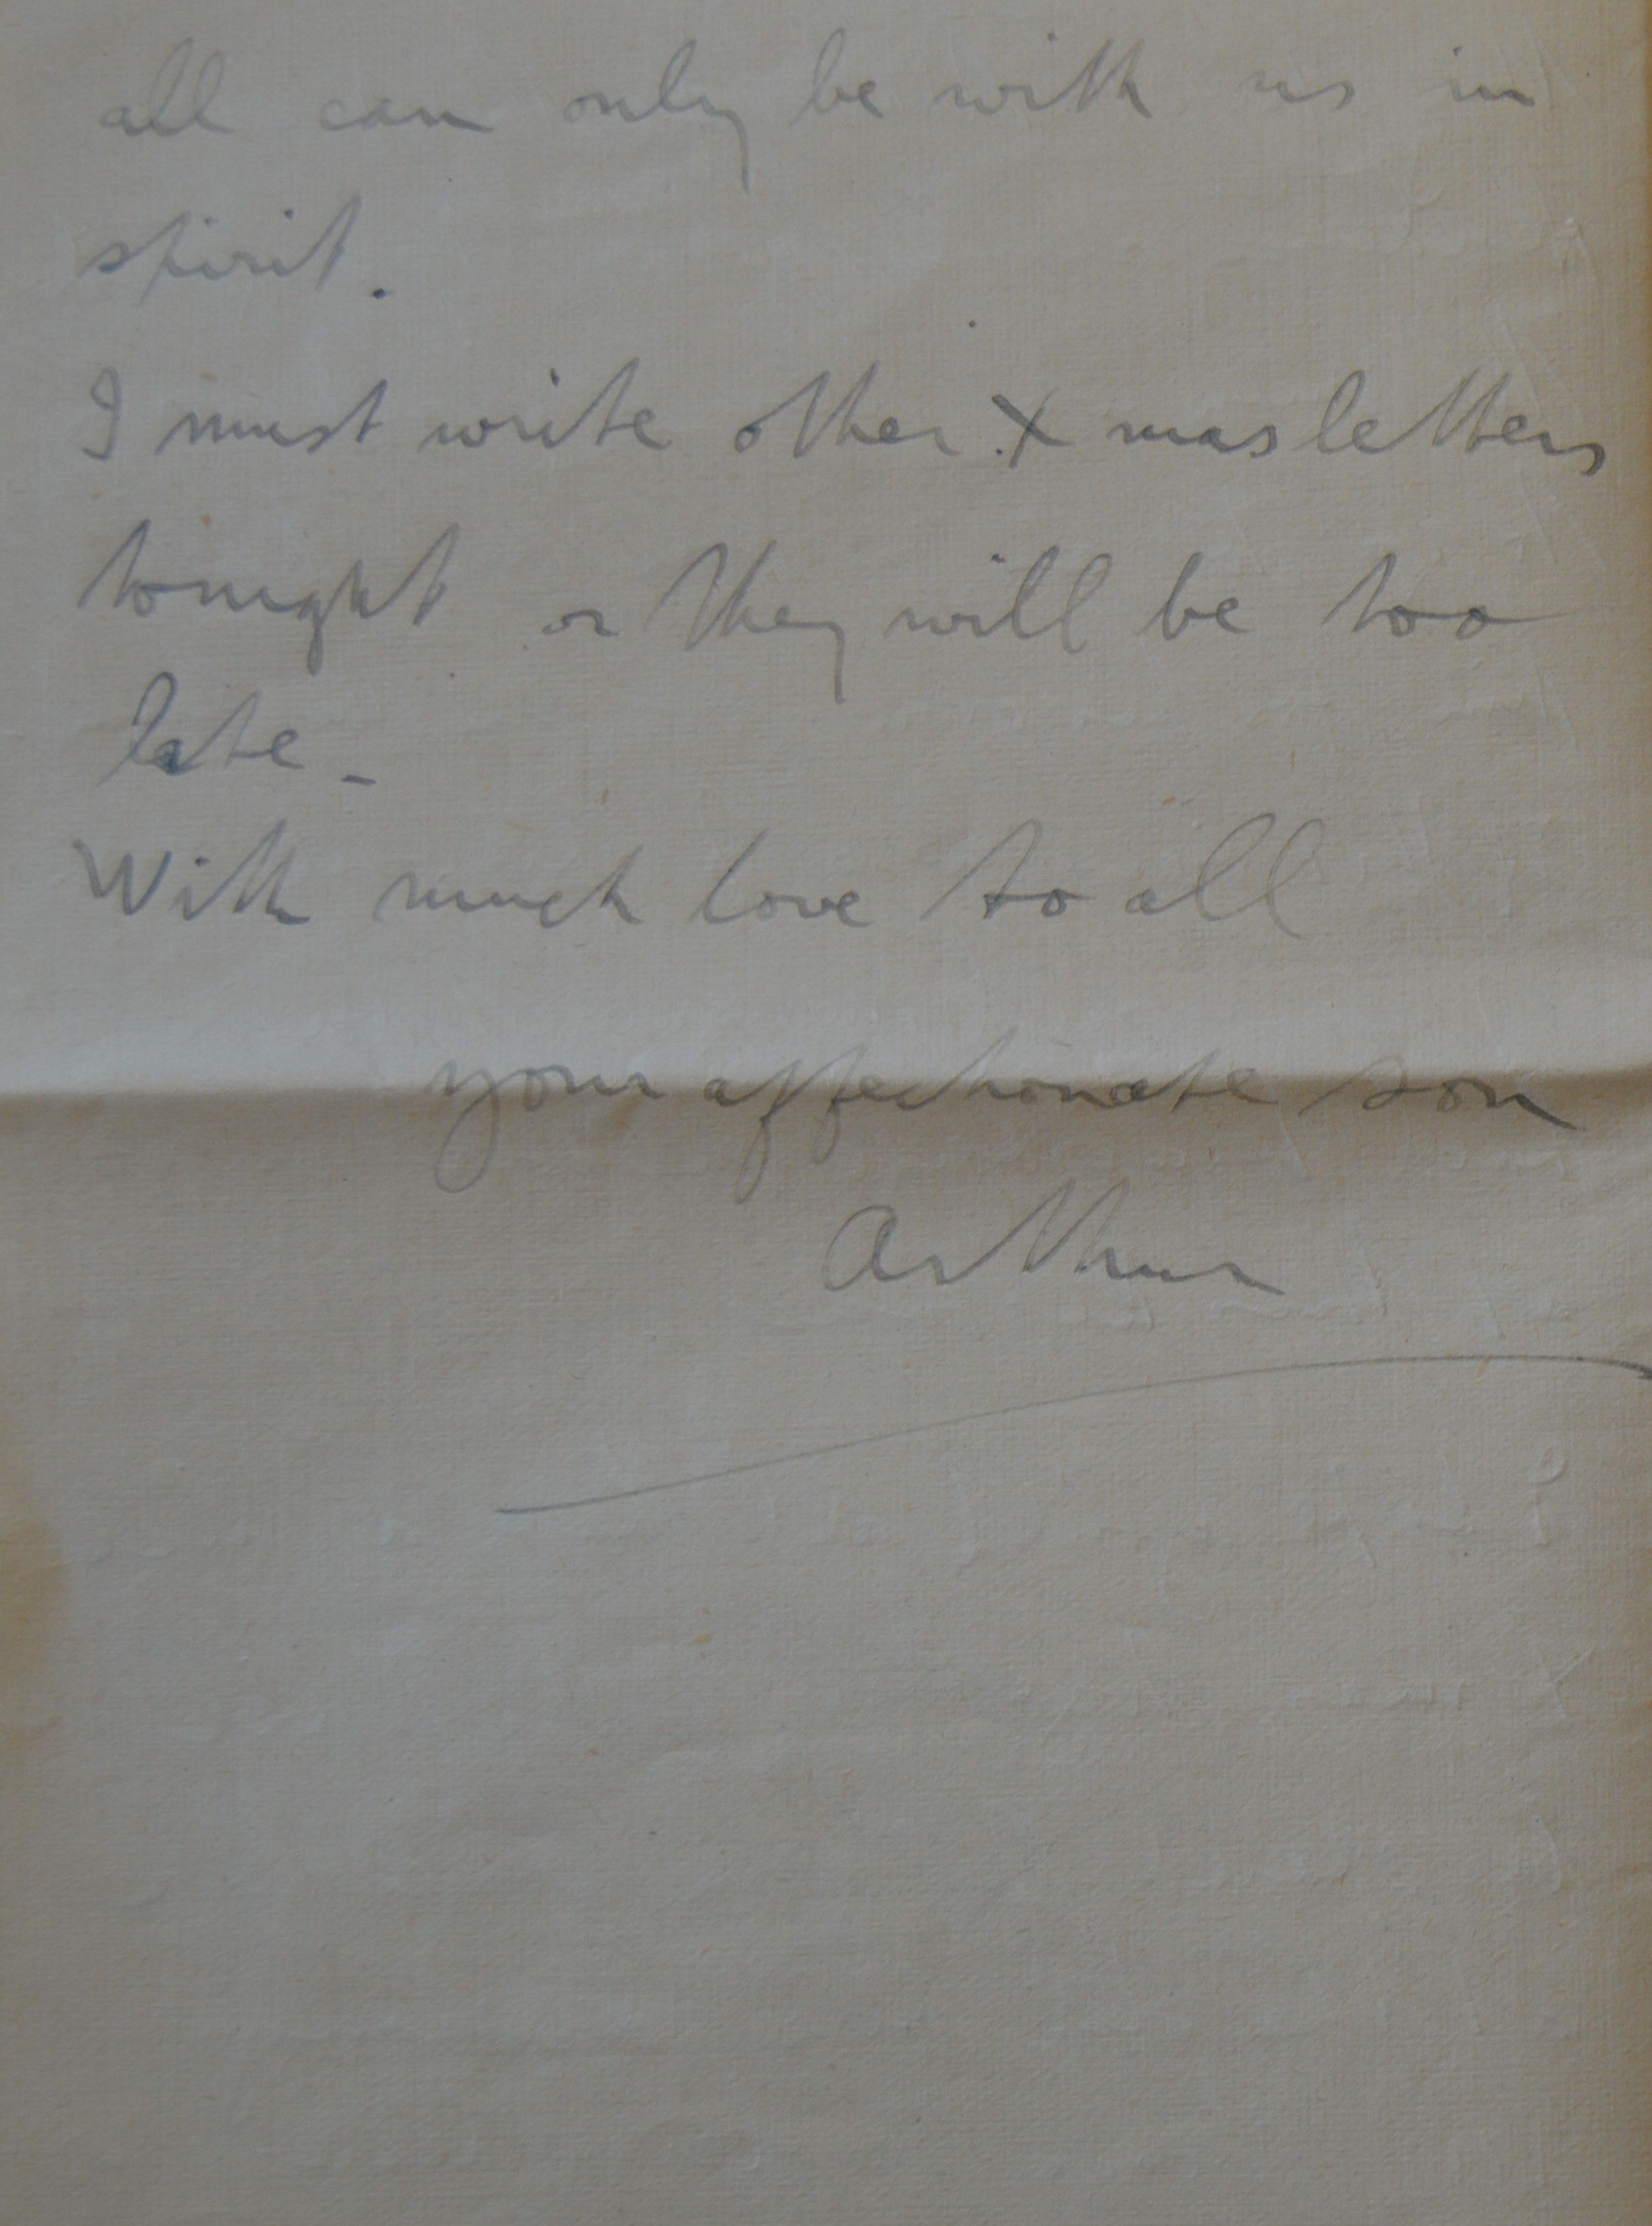 all can only be with us in
spirit.
I must write other Xmas letters
tonight or they will be too
late -
With much love to all
your affectionate son
Arthur